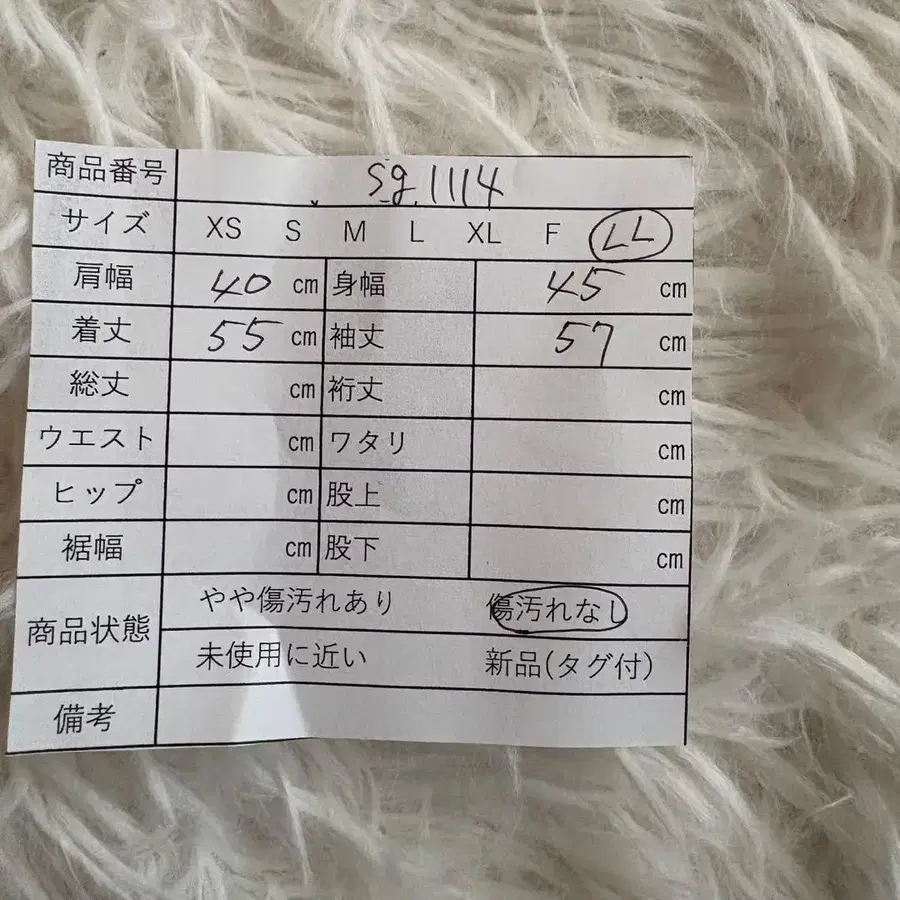 商品番号 sg.1114
サイズ XS S M L XL F LL
肩幅 40 cm 身幅 45 cm
着丈 55 cm 袖丈 57 cm
総丈 cm 裄丈 cm
ウエスト cm ワタリ cm
ヒップ cm 股上 cm
裾幅 cm 股下 cm
商品状態 やや傷汚れあり 傷汚れなし
未使用に近い 新品(タグ付)
備考